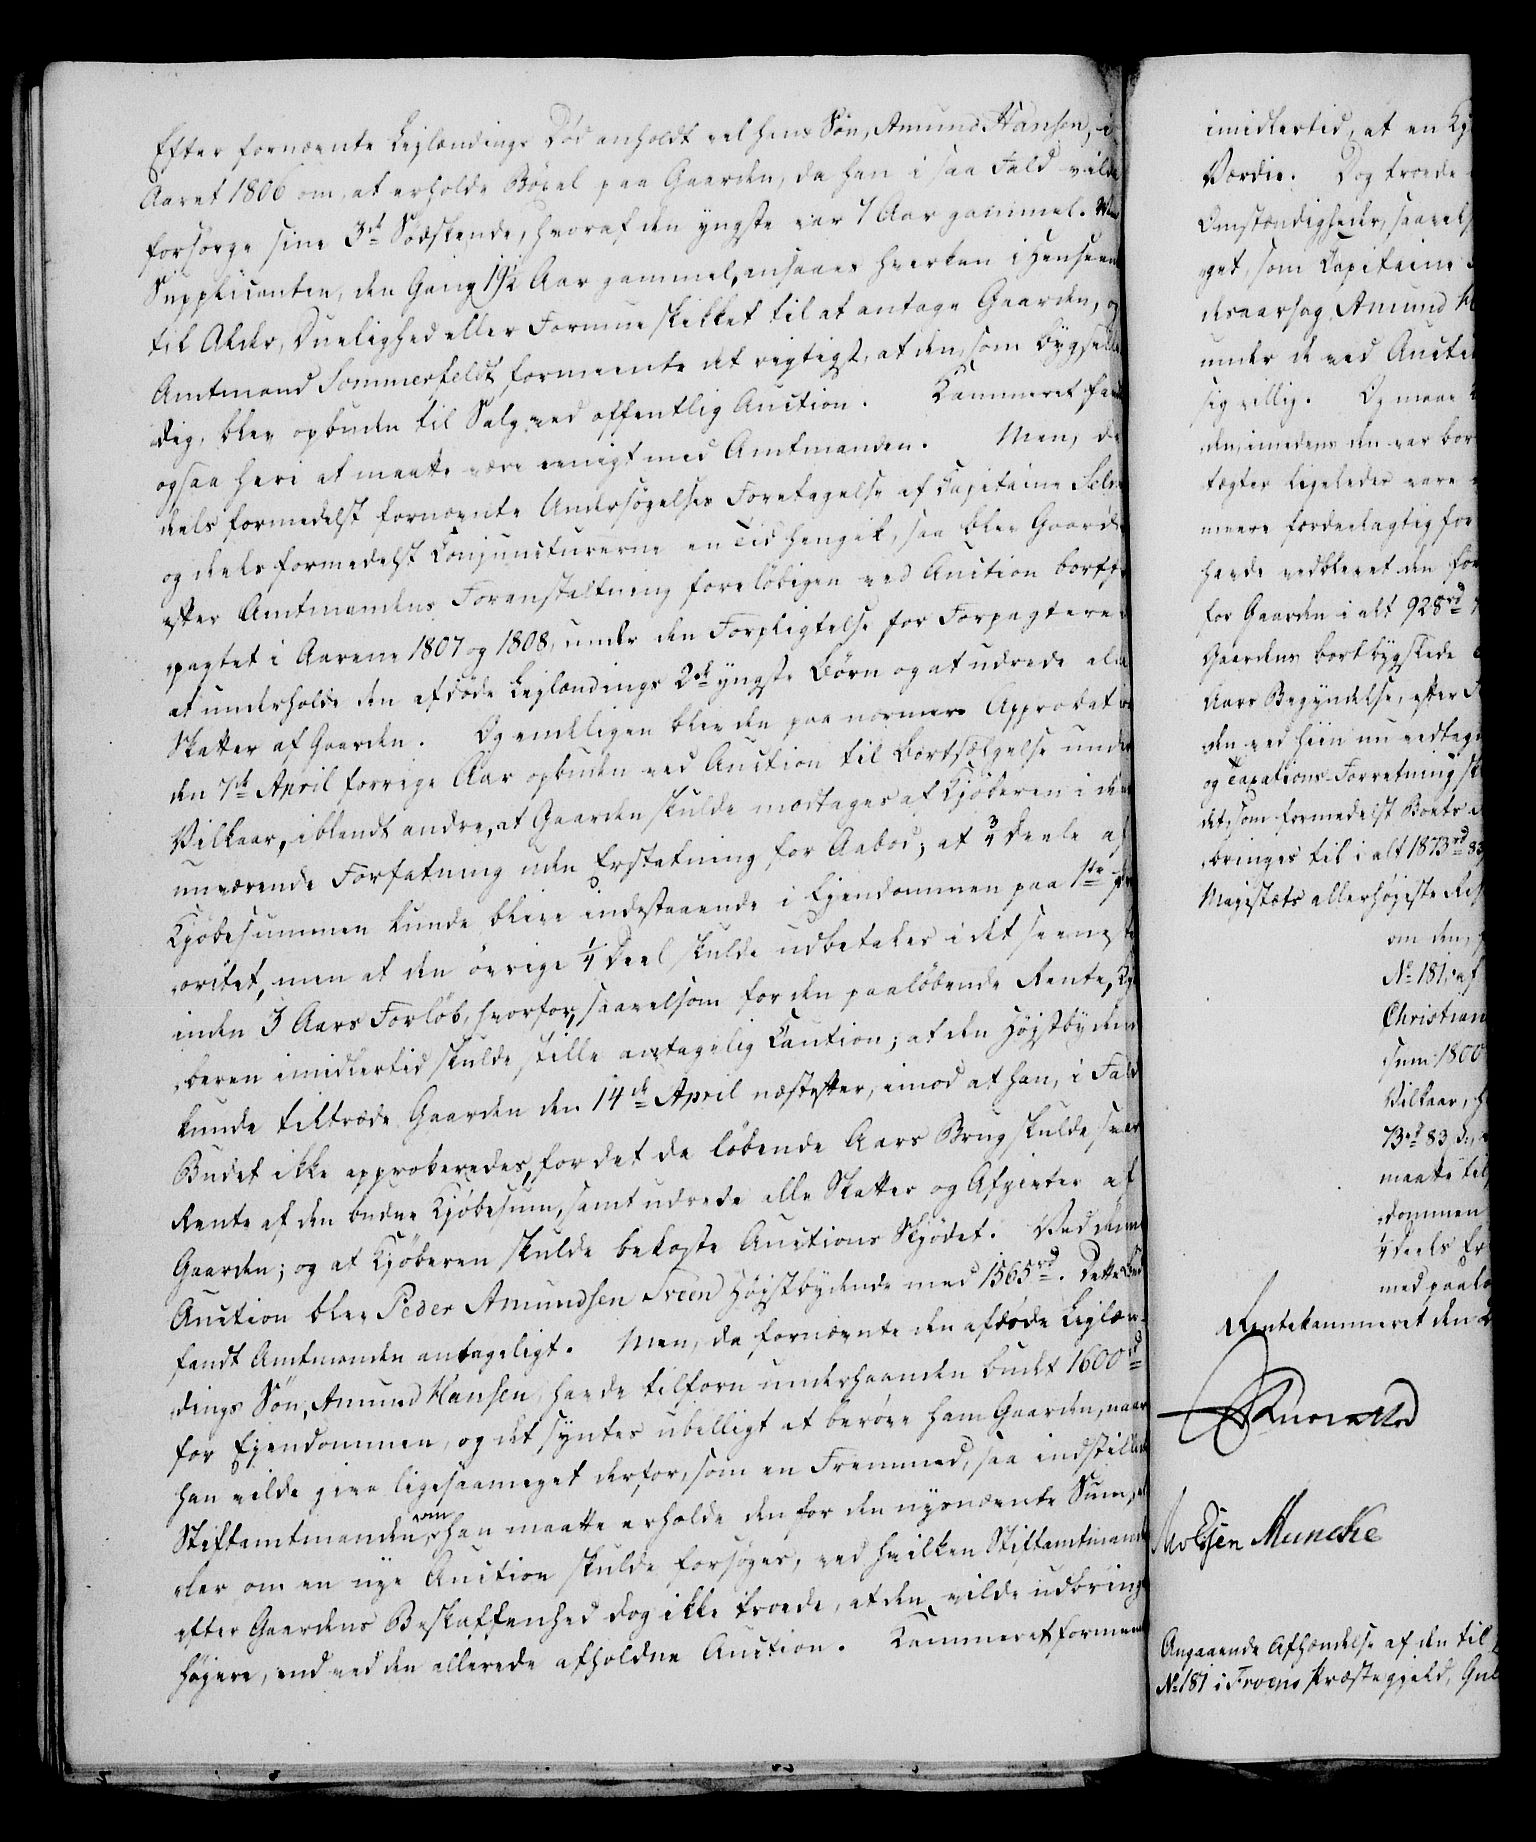 Efter fornævnte Leylændings Død anholdt vel hans Søn, Amund Hansen, i
Aaret 1806 om, at erholde Böxel paa Gaarden, da han i saa Fald vilde
forsørge sine 3de Södskende, hvoraf den yngste var 7 Aar gammel. Men
Supplicanten, den Gang 19½ Aar gammel, ansaaes hverken i Henseende
til Alder, Duelighed eller Formue skikket til at antage Gaarden, og
Amtmand Sommerfeldt formeente det rigtigst, at den, som bygsel
dig, blev opbuden til Salg ved offentlig Auction. Kammeret fandt
ogsaa heri at maatte være eenigt med Amtmanden. Men, da
deels formedelst fornævnte Undersøgelses Foretagelse af Capitaine
og deels formedelst Conjuncturerne en Tid hengik, saa blev Gaarden
efter Amtmandens Foranstaltning foreløbigen ved Auction bortfor
pagtet i Aarene 1807 og 1808, under den Forpligtelse for Forpagteren
at underholde den afdøde Leylændings 2de yngste Børn og at udrede alle
Skatter af Gaarden. Og endeligen blev den paa nærmere Approbation
den 7de April forrige Aar opbuden ved Auction til Bortsælgelse under
Vilkaar, iblandt andre, at Gaarden skulde modtages af Kjøberen i den
nuværende Forfatning uden Erstatning for Aabod; at ¾ Deele af
Kjøbesummen kunde blive indestaaende i Ejendommen paa 1ste Pri
oritet, men at den øvrige ¼ Deel skulde udbetales i det seeneste
inden 3 Aars Forløb, hvorfor, saavelsom for den paaløbende Rente, Kjø
beren imidlertid skulde stille antagelig Caution; at den Højstbydende
kunde tiltræde Gaarden den 14de April næstefter, imod at han, i Fald
Budet ikke approberedes, for det da løbende Aars Brug skulde svare
Rente af den budne Kjøbesum, samt udrede alle Skatter og Afgivter af
Gaarden; og at Kjøberen skulde bekoste Auctions Skjødet. Ved denne
Auction blev Peder Amundsen Sveen Højstbydende med 1565 rd. Dette Bud
fandt Amtmanden antageligt. Men, da fornævnte den afdøde Leylæn-
dings Søn, Amund Hansen, havde tilforn underhaanden budet 1600 rd
for Ejendommen, og det syntes ubilligt at berøve ham Gaarden, naar
han vilde give ligesaameget derfor, som en Fremmed, saa indstillede
Stiftamtmanden, om han maatte erholde den for den nysnævnte Sum, el
ler om en nye Auction skulde forsøges, ved hvilken Stiftamtmanden
efter Gaardens Beskaffenhed dog ikke troede, at den vilde udbringes
højere, end ved den allerede afholdne Auction. Kammeret formeente
imidlertid, at en
Værdie. Dog troede
Omstændigheder, saavel
get, som Capitaine
desaarsag Amund
under de ved Auctio
sig villig. Og maae
den, imedens den var bor
tægter ligeledes vare
meere fordeelagtig for
havde vedblevet den for
for Gaarden i alt 928 rd
Gaardens bortbygslede
Aars Begyndelse, efter
den ved
og Taxations-Forretning
det, som formedelst
bringes til i alt 1873 rd 83
Majestæts allerhøjeste Re
om den,
No 181, af
Christian
sum 1800
Vilkaar,
73 rd 83
maatte til
dommen
¼ Deels
med paalø
Rentekammeret den
Knoph
Molsen Muncke
Angaaende Afhændelse af den til
No 181 i Froens Præstegjeld, Gul